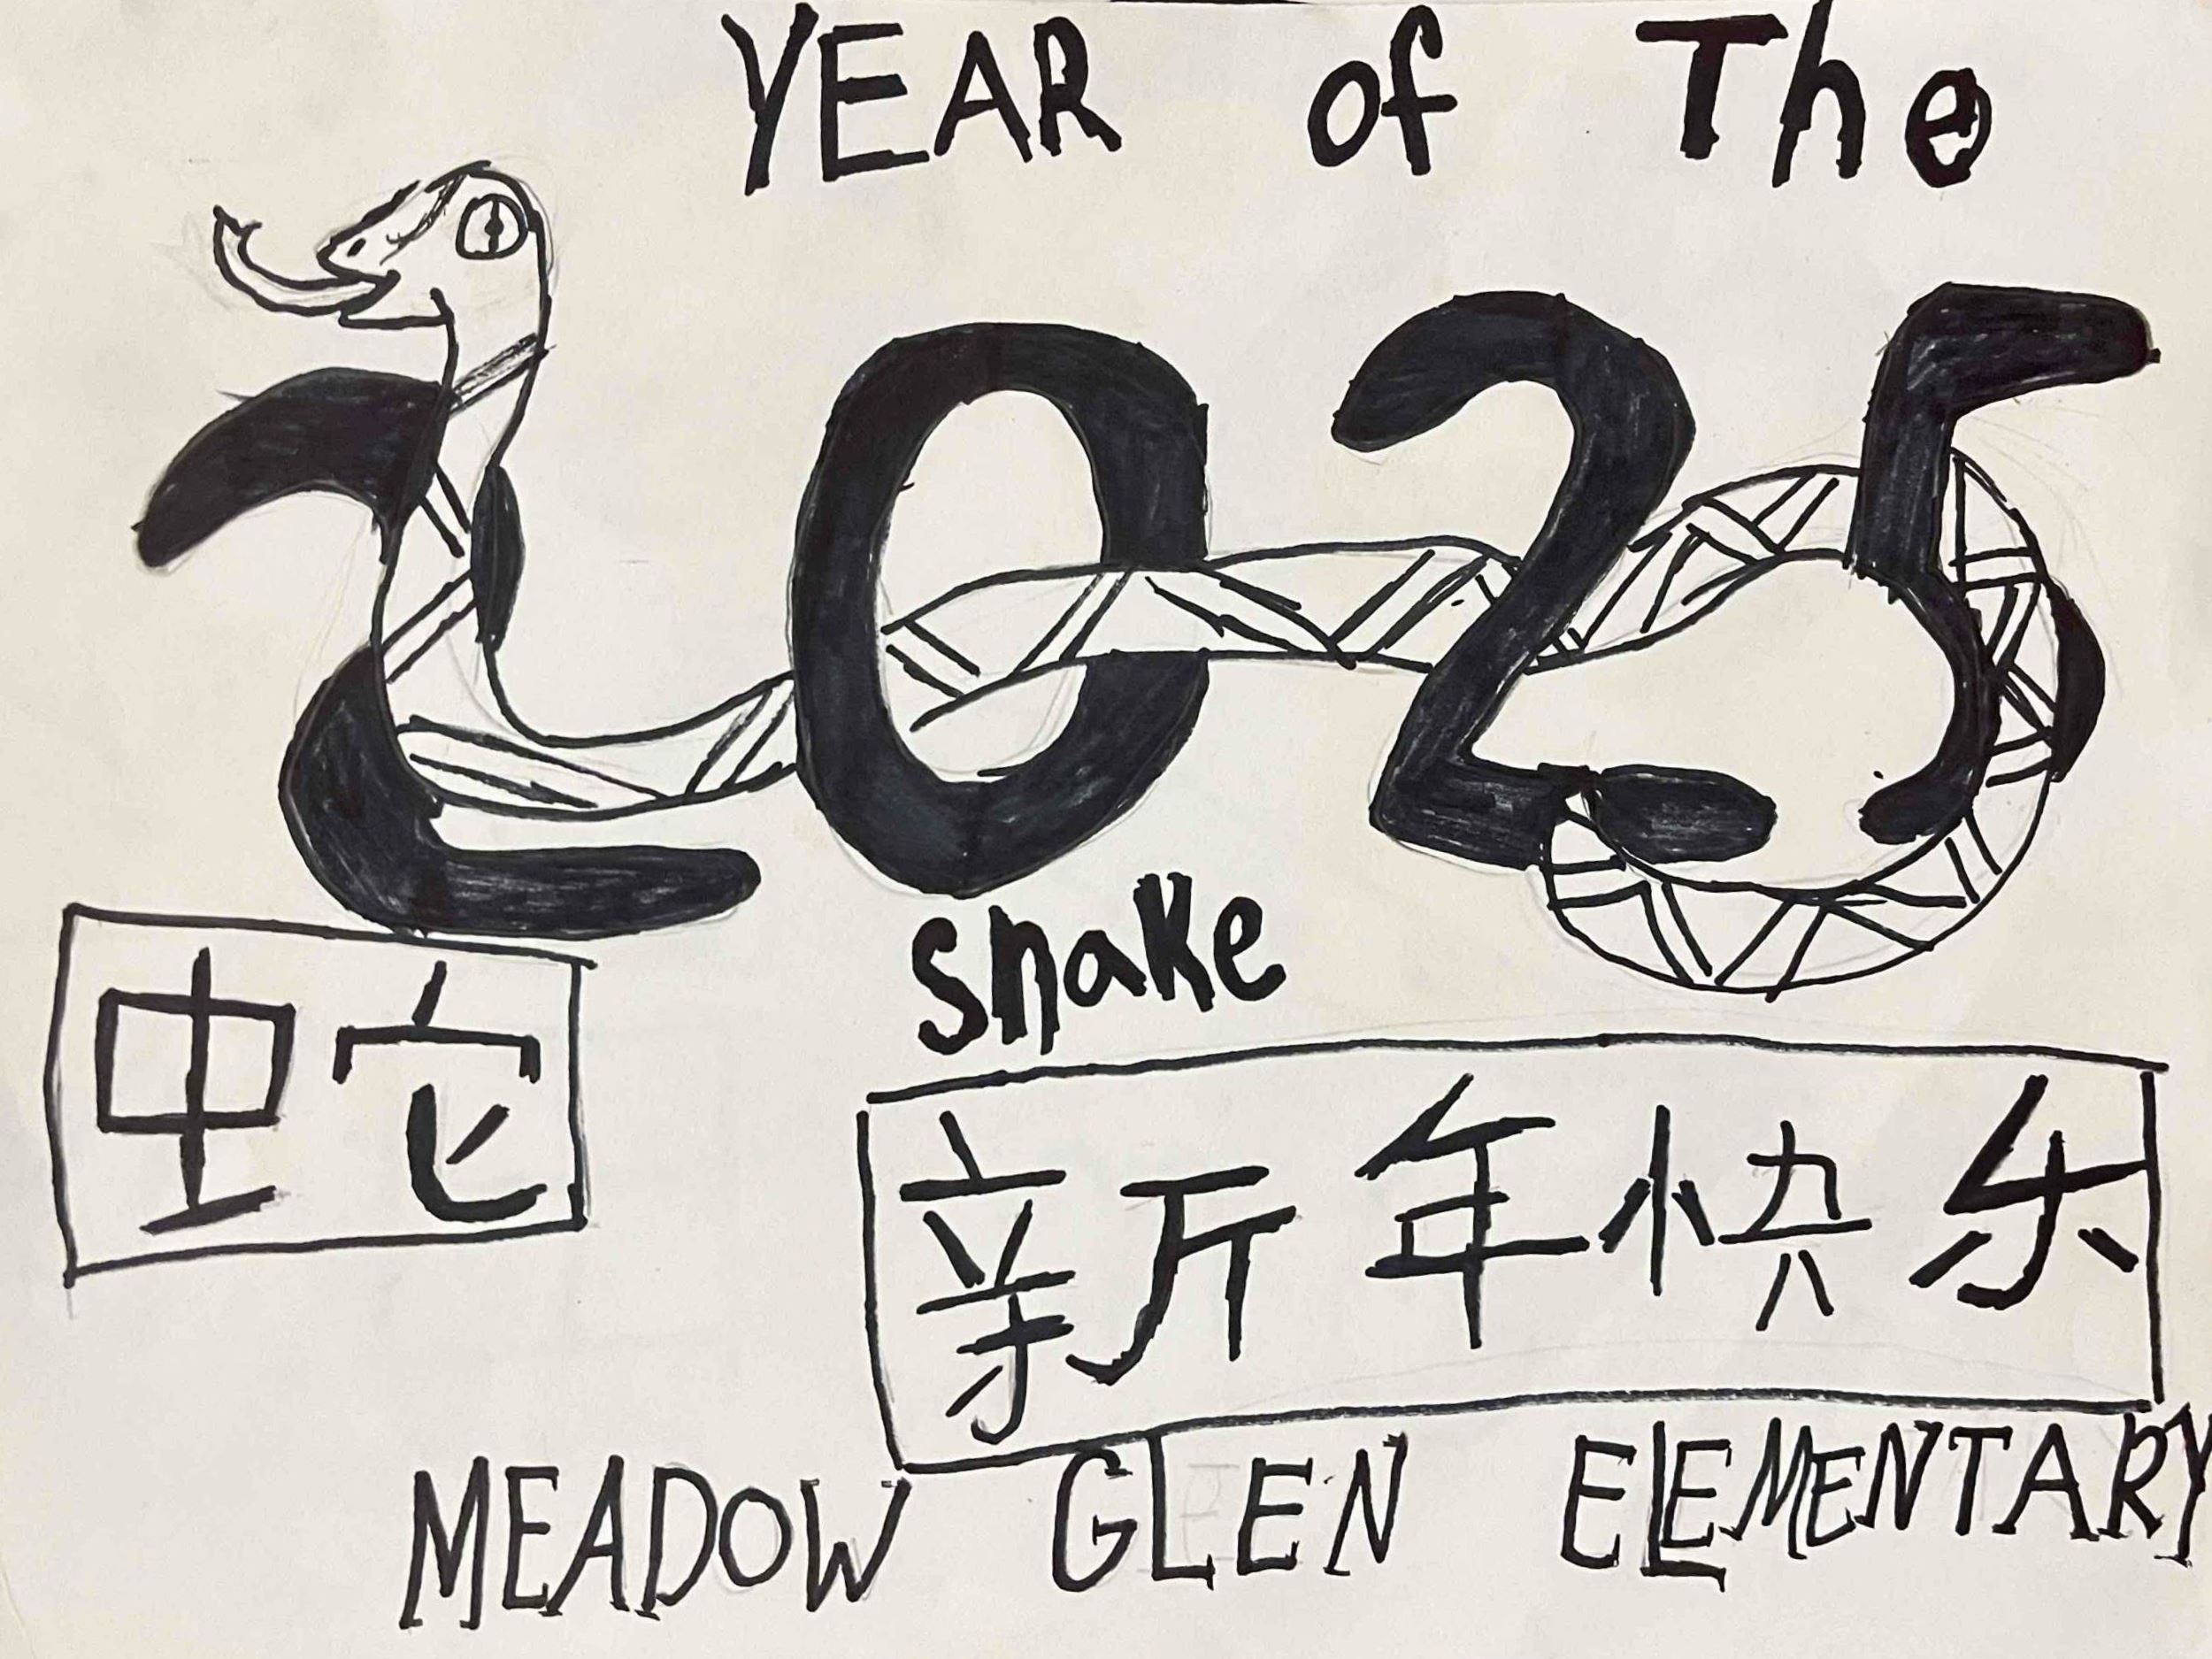 YEAR of The
2025
snake
蛇
新年快乐
MEADOW GLEN ELEMENTARY